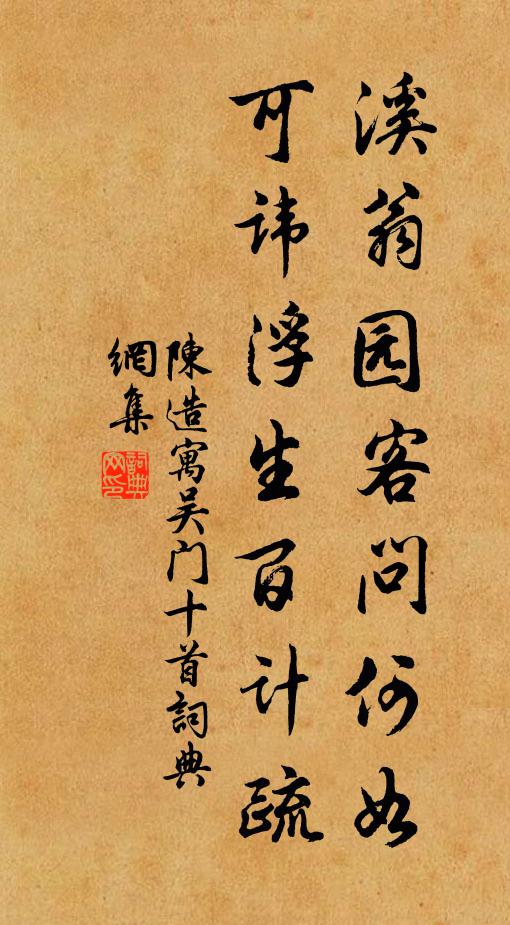 溪翁园客问何如
可讳浮生百计疏
陳造寓吴门十首詞典
網集
詞典網印